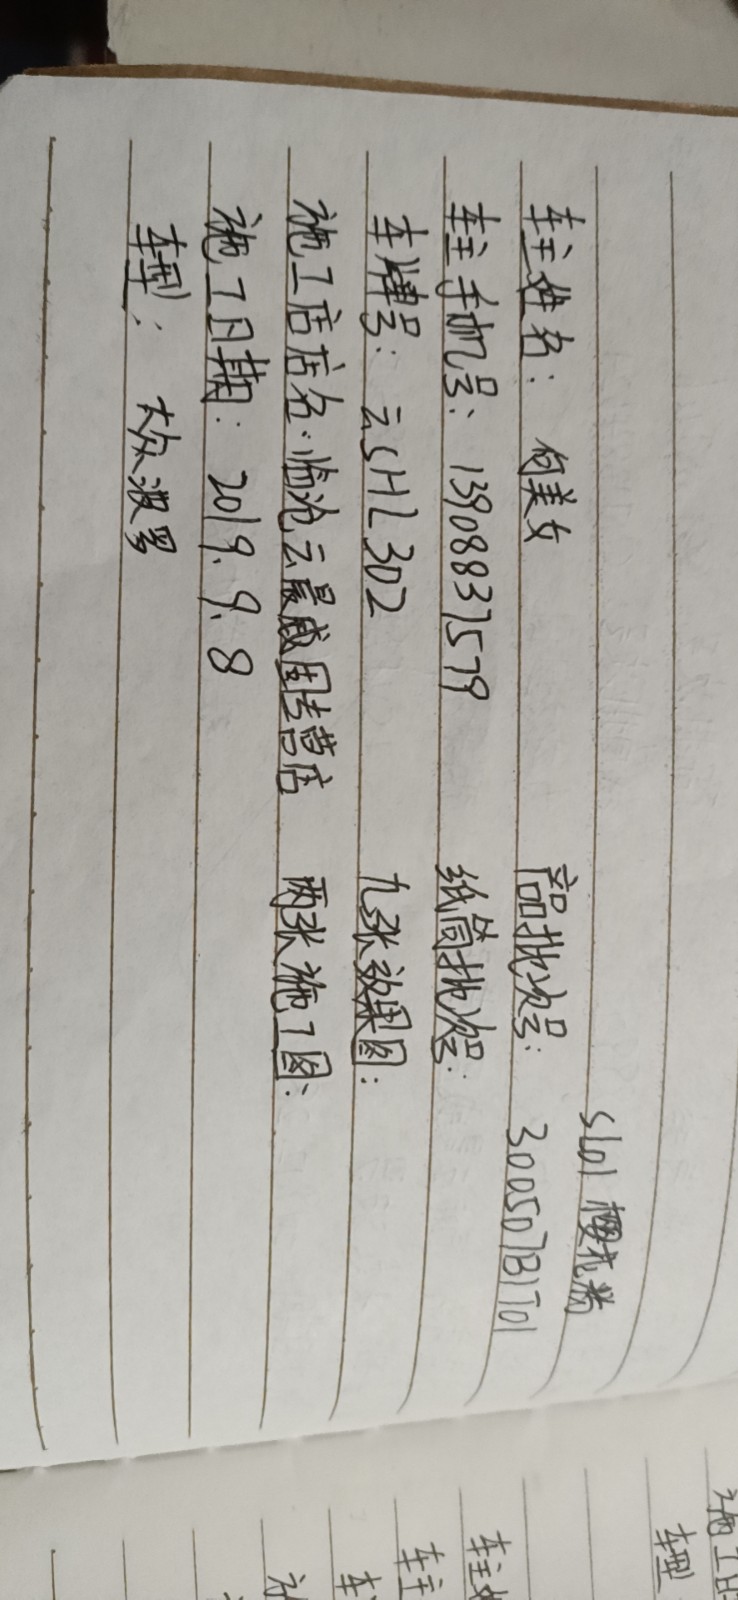 SL01 樱花粉
车主姓名： 何美女 产品批次号： 300507B1T01
车主手机号： 13908837579 纸筒批次号：
车牌号： 云SHL302 九张效果图：
施工店店名：临沧云晨威固专营店 两张施工图：
施工日期： 2019.9.8
车型： 大众波罗
施工日
车型
车主姓
车主
车